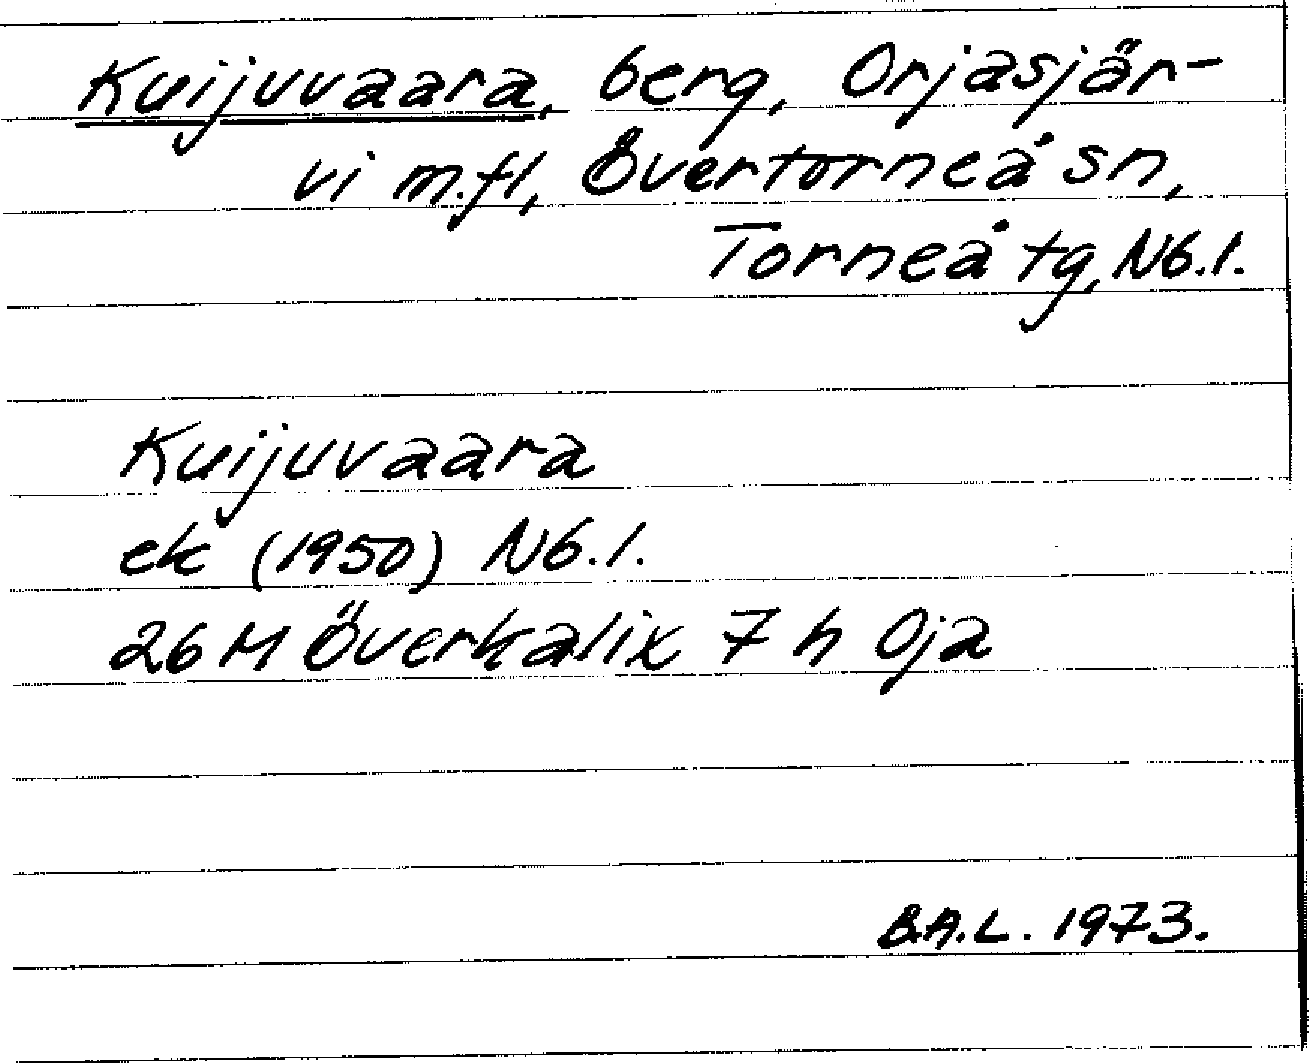 Kuijuvaara, berg, Orjasjär-
vi m.fl, Övertorneå sn,
Torneå tg, Nb.l.
Kuijuvaara
ek (1950) Nb.l.
26 M Överkalix 7 h Oja
B.A.L. 1973.